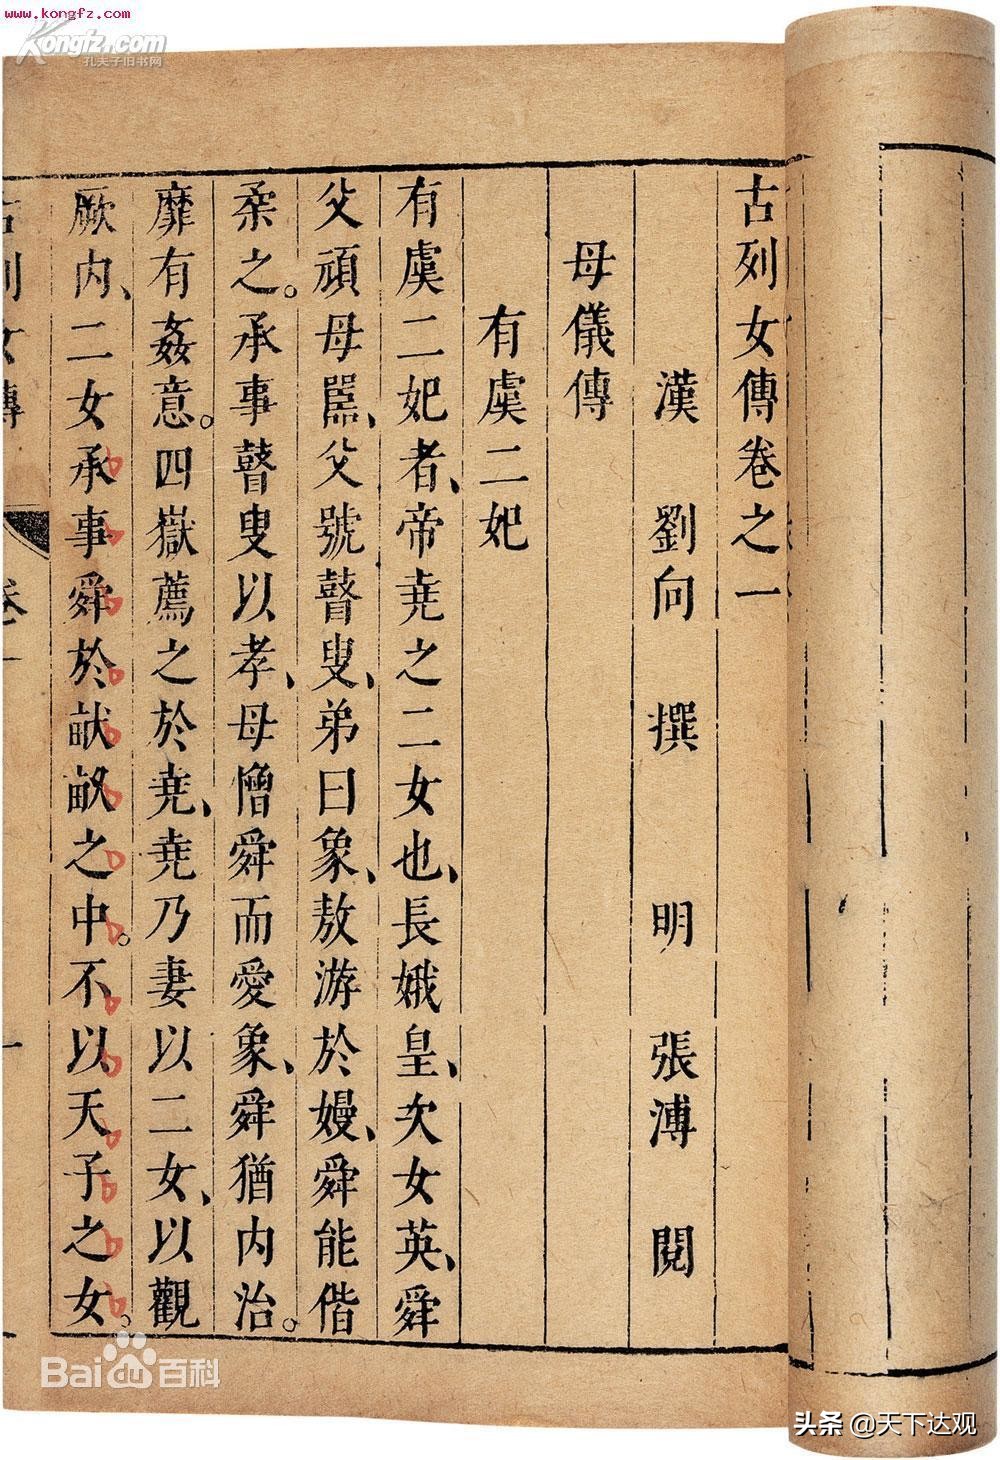 古列女傳卷之一
漢 劉向 撰 明 張溥 閱
母儀傳
有虞二妃
有虞二妃者、帝堯之二女也、長娥皇、次女英、舜
父頑母嚚、父號瞽叟、弟曰象、敖游於嫚、舜能偕
柔之。承事瞽叟以孝、母憎舜而愛象、舜猶内治。
靡有姦意。四嶽薦之於堯、堯乃妻以二女、以觀
厥内、二女承事舜於畎畝之中。不以天子之女。
古列女傳 卷一 一
www.kongfz.com
Kongfz.com
孔夫子旧书网
Bai百科
头条 @天下达观